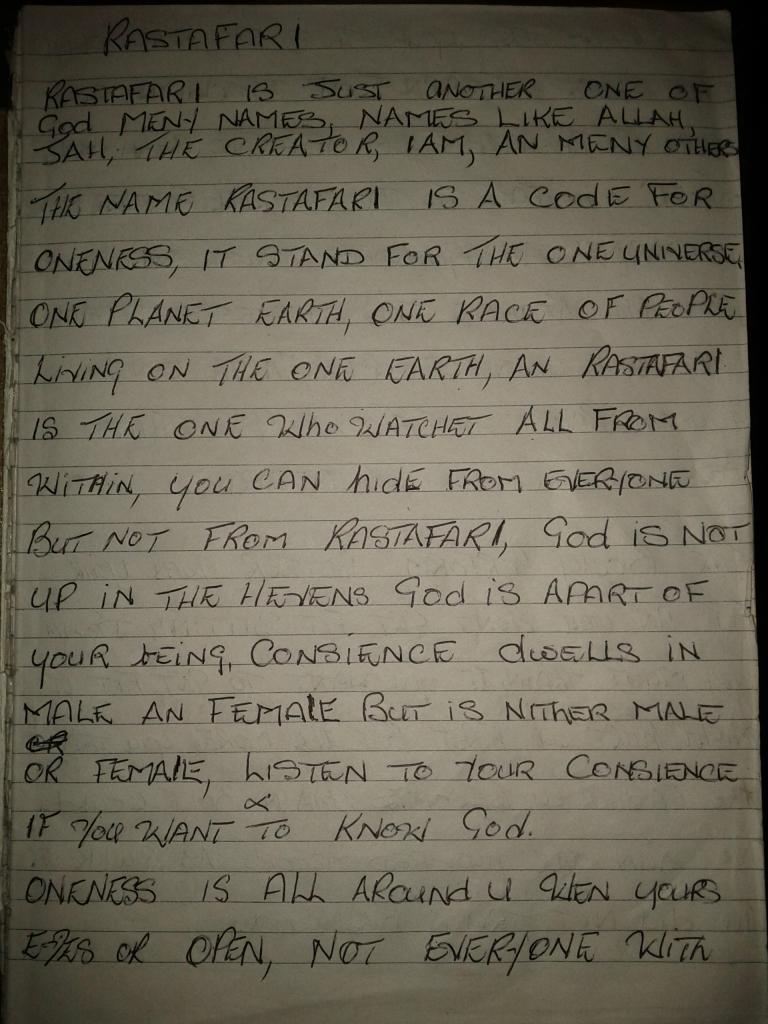 RASTAFARI
RASTAFARI IS JUST ANOTHER ONE OF
God MENY NAMES, NAMES LIKE ALLAH,
JAH, THE CREATOR, I AM, AN MENY OTHERS
THE NAME RASTAFARI IS A CODE FOR
ONENESS, IT STAND FOR THE ONE UNIVERSE,
ONE PLANET EARTH, ONE RACE OF PEOPLE
LIVING ON THE ONE EARTH, AN RASTAFARI
IS THE ONE WHO WATCHET ALL FROM
WITHIN, YOU CAN HIDE FROM EVERYONE
BUT NOT FROM RASTAFARI, God iS NOT
UP IN THE HEVENS God iS APART OF
YOUR bEING, CONSIENCE dWELLS IN
MALE AN FEMAlE BUT iS NITHER MALE
OR FEMAlE, LISTEN TO YOUR CONSIENCE
IF YOU WANT TO KNOW God.
ONENESS IS ALL AROUND U WEN YOURS
EYES OR OPEN, NOT EVERYONE WITH